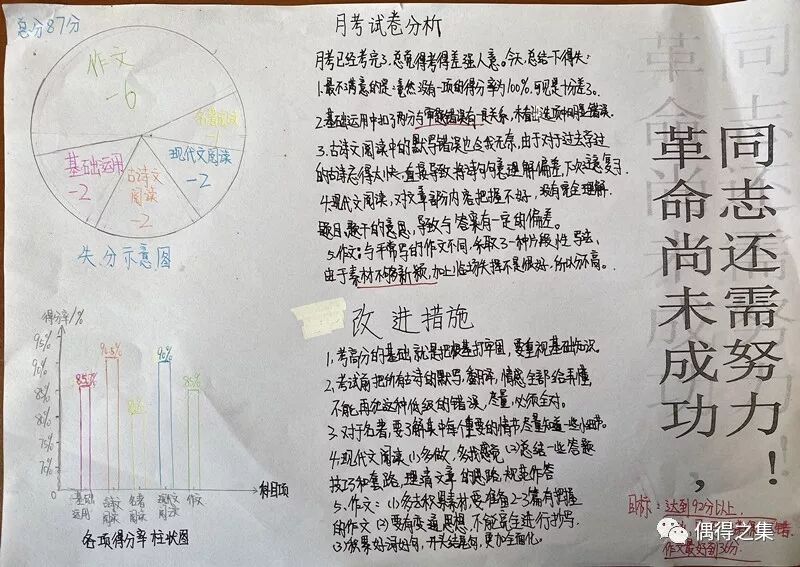 总分87分
作文
-6
名著阅读
基础运用
-2
古诗文
阅读
-2
现代文阅读
-2
失分示意图
得分率/%
95%
90%
85%
80%
75%
70%
0
85.7%
90%
85%
基础
运用
古诗文
阅读
名著
阅读
现代文
阅读
作文
科目项
各项得分率柱状图
月考试卷分析
月考已经考完了,总觉得考得差强人意。今天总结下得失:
1.最不满意的是:竟然没有一项的得分率为100%,可见是十分差了。
2.基础运用中扣了两分与审题错误有一定关系,未看出选项中明显错误。
3.古诗文阅读中的默写错误也令我无奈,由于对于过去学过
的古诗忘得太快,直接导致将诗句意理解偏差,下次注意复习
4.现代文阅读,对文章部分内容把握不好,没有完全理解
题目、题干的意思,导致与答案有一定的偏差。
5.作文:与平常写的作文不同,采取了一种片段性写法,
由于素材不够新颖,加上临场发挥不是很好,所以分不高。
改进措施
1.考高分的基础就是把根基打牢固,要重视基础知识。
2.考试前把所有古诗的默写、翻译、情感全部给弄懂
不能再犯这种低级的错误,尽量、必须全对。
3.对于名著,要了解其中每个重要的情节尽量知道一些小细节。
4.现代文阅读(1)多做,多找感觉(2)总结一些答题
技巧和套路,理清文章的思路,规范作答
5.作文:(1)多去积累素材要准备2-3篇有把握
的作文(2)要有变通思想,不能完全进行抄写.
(3)积累好词好句,开头结尾句,更加全面化。
革命尚未成功,
同志还需努力!
目标:达到92分以上
错
作文最好到36分.
偶得之集